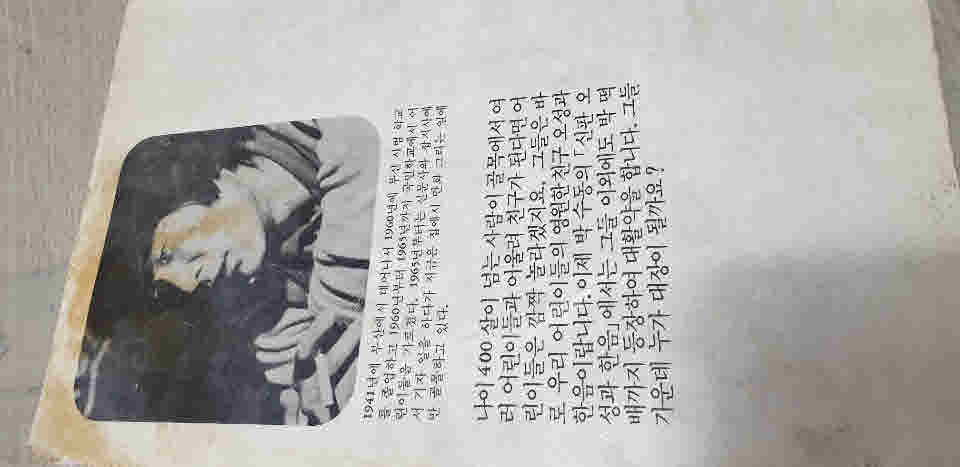 1941년에 부산에서 태어나서 1960년에 부산 사범 학교
를 졸업하고 1960년부터 1965년까지 국민학교에서 어
린이들을 가르쳤다. 1965년부터는 신문사와 잡지사에
서 기자 일을 하다가 지금은 집에서 만화 그리는 일에
만 골몰하고 있다.
나이 400살이 넘는 사람이 골목에서 여
러 어린이들과 어울려 친구가 된다면 어
린이들은 깜짝 놀라겠지요. 그들은 바
로 우리 어린이들의 영원한 친구 오성과
한음이랍니다. 이제 박 수동의 「신판 오
성과 한음」에서는 그들 이외에도 박 떡
배까지 등장하여 대활약을 합니다. 그들
가운데 누가 대장이 될까요?